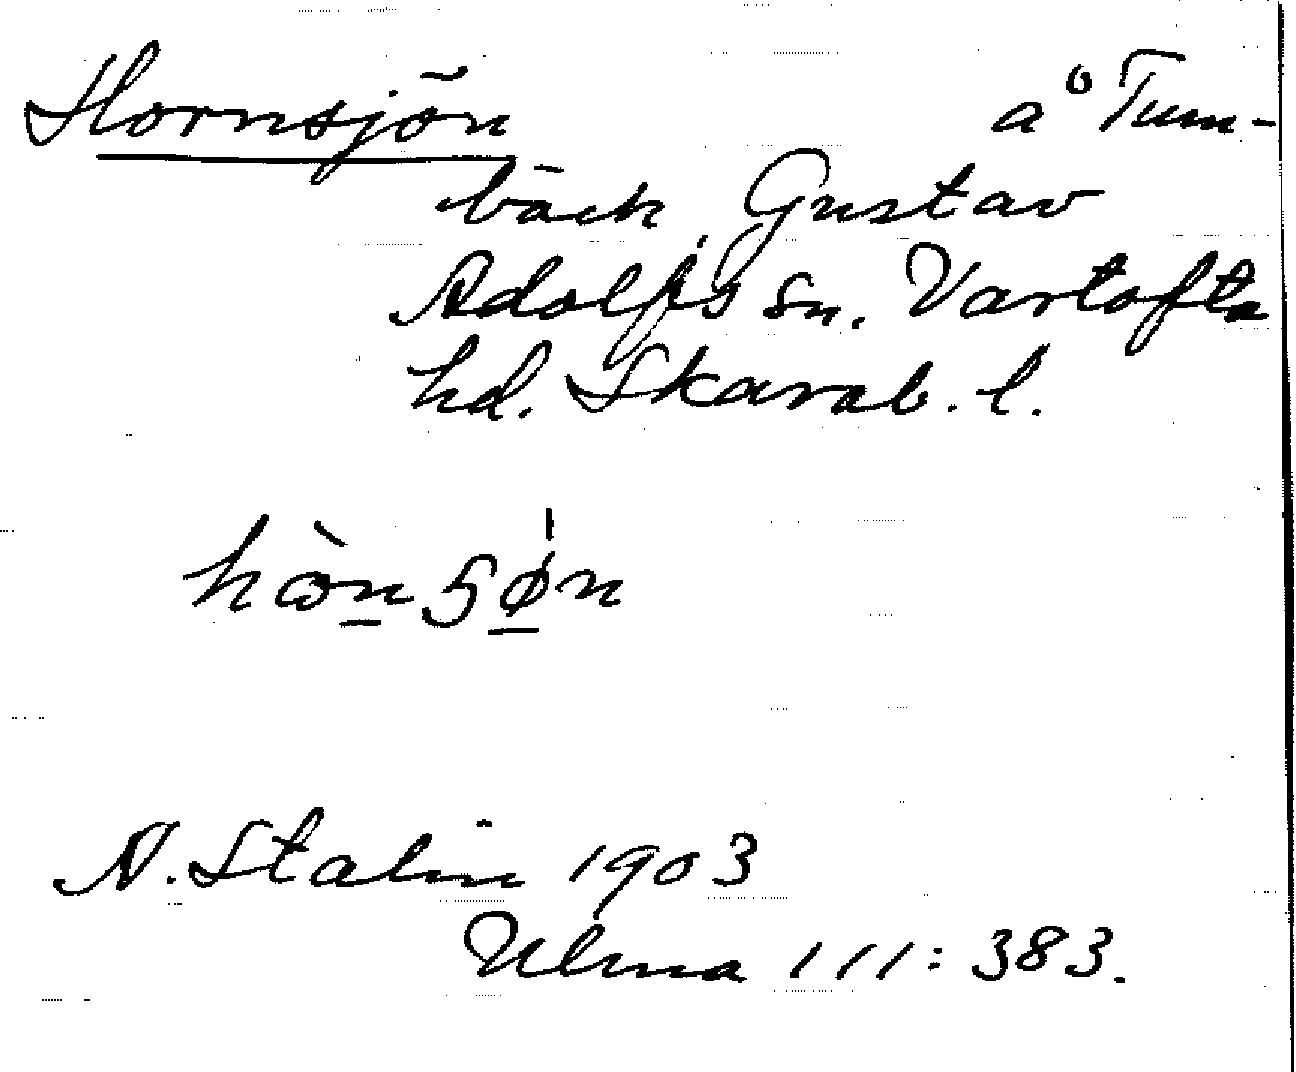 Hornsjön å Tum-
bäck Gustav
Adolfs sn. Vartofta
hd. Skarab. l.
N. Stalin 1903
Ulma 111:383.